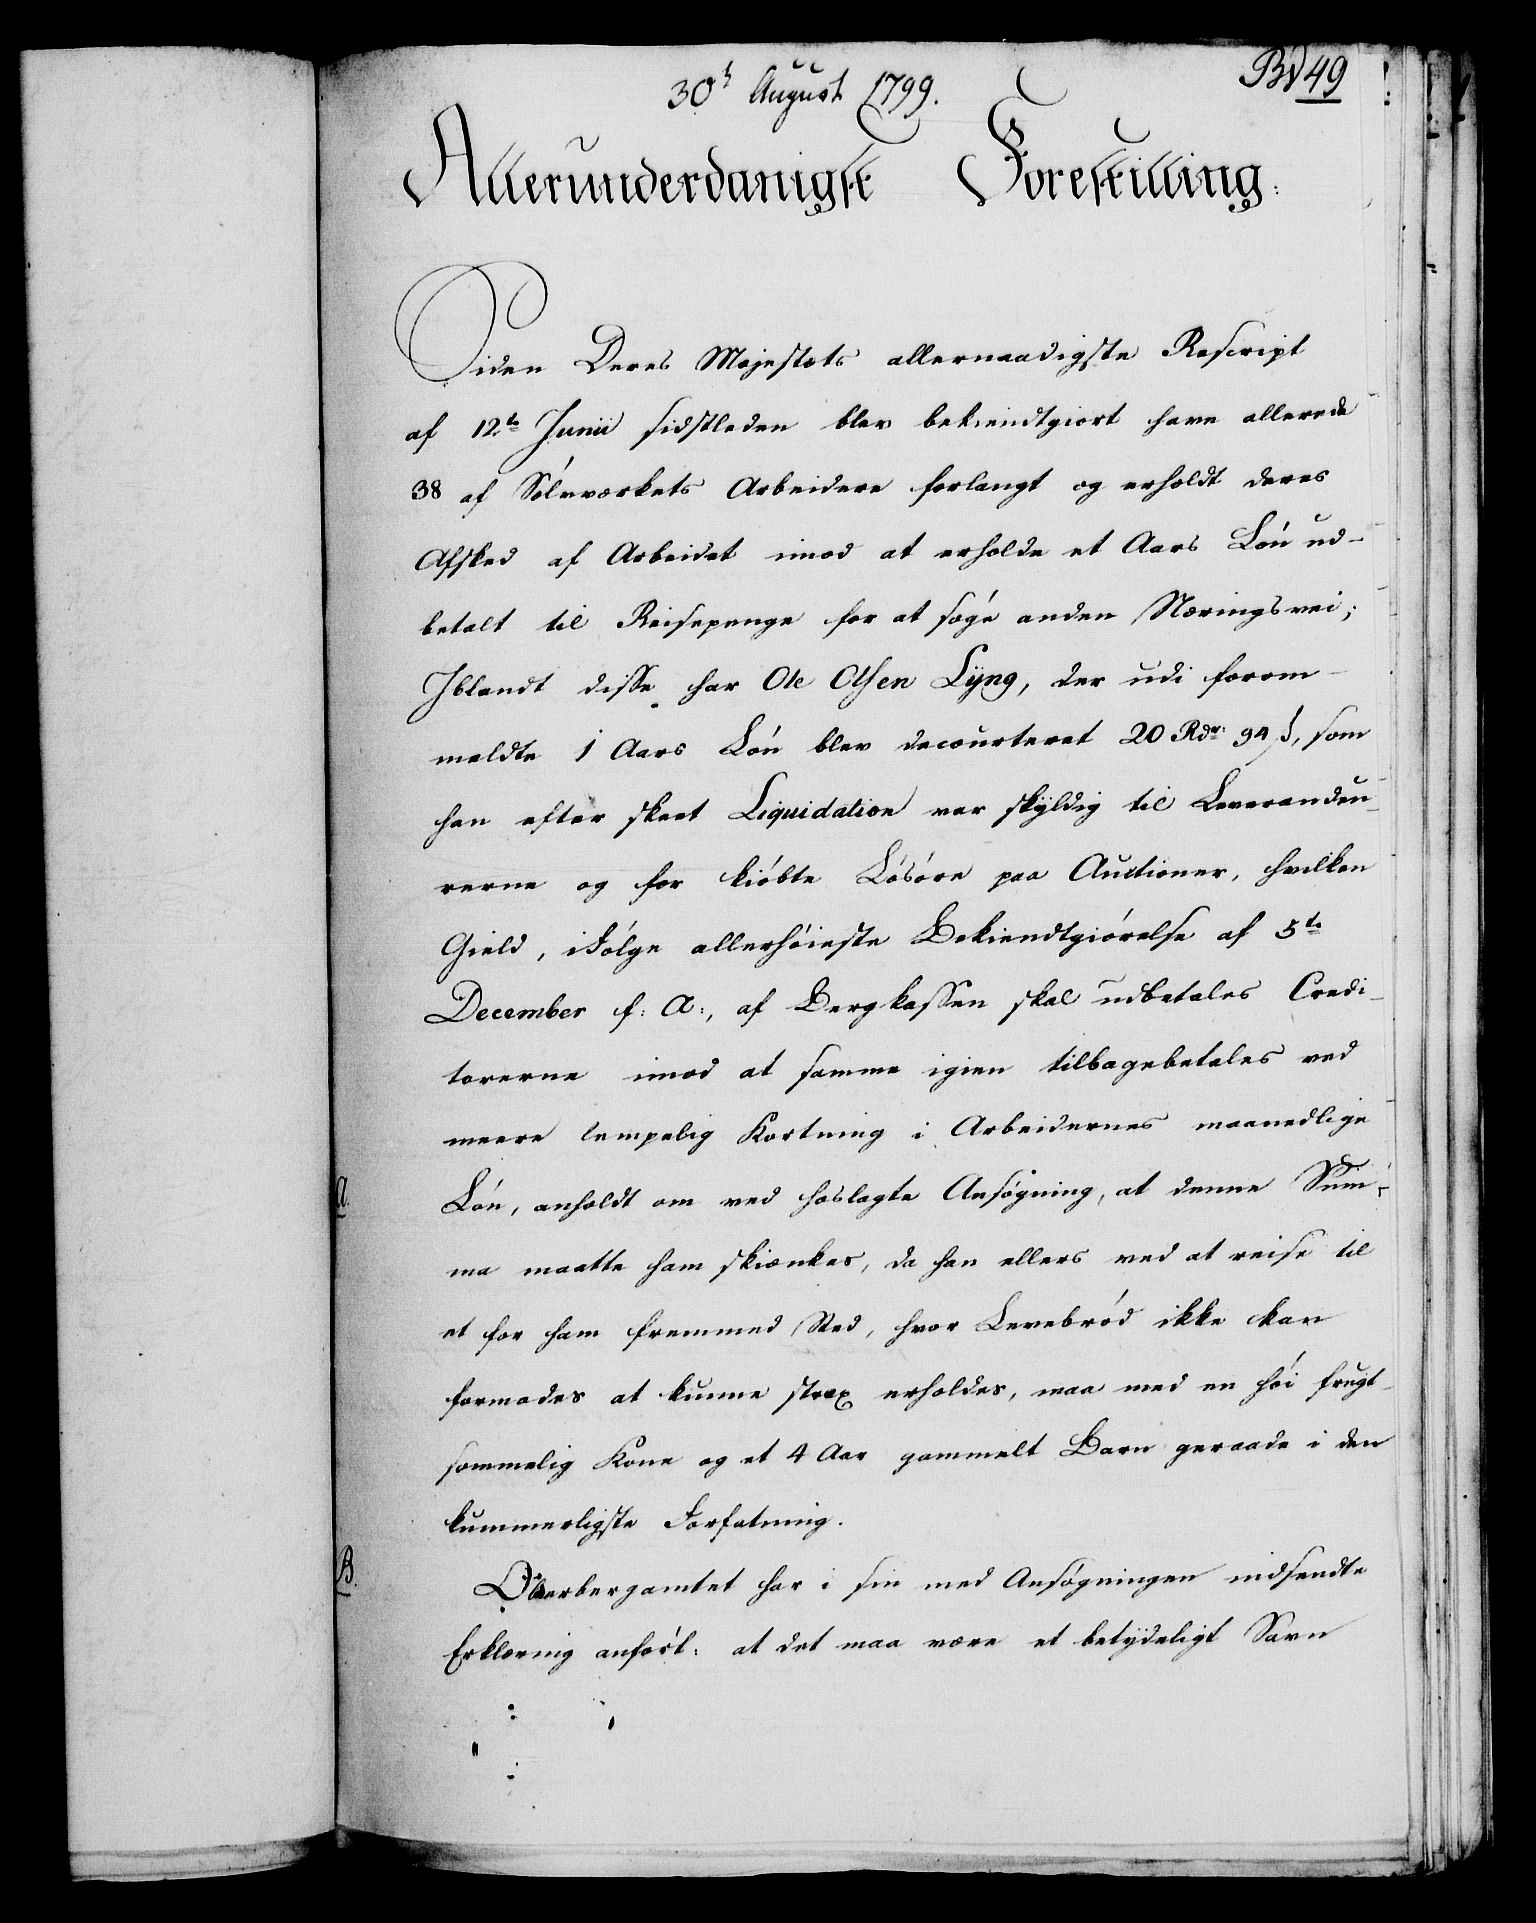 30t August 1799.
Bd 49
Allerunderdanigst Forestilling:
Siden Deres Majestæts allernaadigste Rescript
af 12te Junii sidstleden blev bekiendtgiort have allerede
38 af Sölvværkets Arbeidere forlangt og erholdt deres
Afsked af Arbeidet imod at erholde et Aars Lön ud-
betalt til Reisepenge for at söge anden Næringsvei;
Iblandt disse har Ole Olsen Lyng, der udi forom-
meldte 1 Aars Lön blev decourteret 20 Rdr 94 s, som
han efter skeet Liquidation var skyldig til Leverandeu-
rerne og for kiöbte Lösöre paa Auctioner, hvilken
Gield, ifölge allerhöieste Bekiendtgiörelse af 5te
December f: A:, af Bergkassen skal udbetales Credi-
torerne imod at samme igien tilbagebetales ved
meere lempelig Kortning i Arbeidernes maanedlige
A.
Lön, anholdt om ved hoslagte Ansögning, at denne Sum-
ma maatte ham skiænkes, da han ellers ved at reise til
et for ham fremmed Sted, hvor Levebröd ikke kan
formodes at kunne strax erholdes, maa med en höi frugt-
sommelig Kone og et 4 Aar gammelt Barn geraade i den
kummerligste Forfatning.
B.
Oberbergamtet har i sin med Ansögningen indsendte
Erklæring anfört: at det maa være et betydeligt Savn